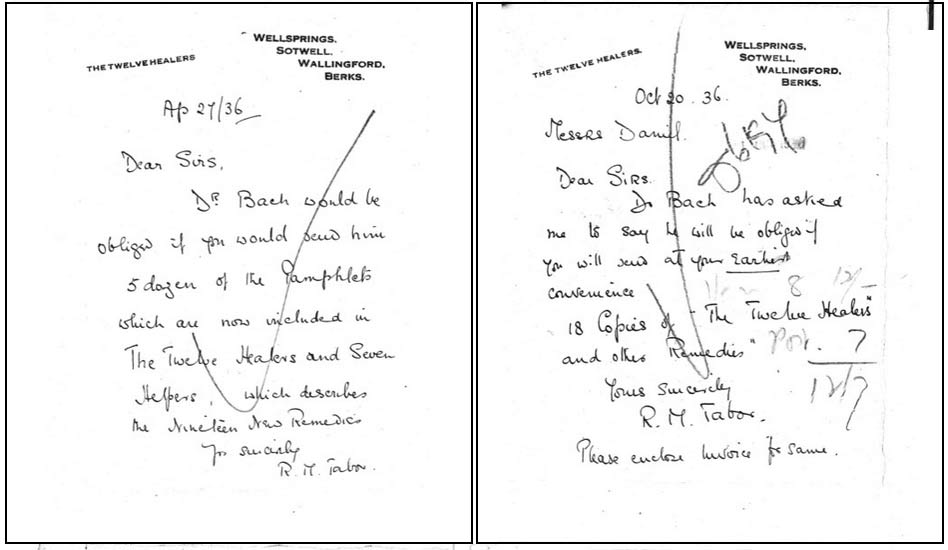 THE TWELVE HEALERS
WELLSPRINGS,
SOTWELL,
WALLINGFORD,
BERKS.
Ap 27/36
Dear Sirs,
Dr Bach would be
obliged if you would send him
5 dozen of the Pamphlets
which are now included in
The Twelve Healers and Seven
Helpers, which describes
the Nineteen New Remedies
Yrs sincerely
R. M. Tabor.
THE TWELVE HEALERS.
WELLSPRINGS,
SOTWELL,
WALLINGFORD,
BERKS.
Oct 20. 36.
Messrs Daniel.
Dear Sirs.
Dr Bach has asked
me to say he will be obliged if
you will send at your Earliest
convenience
8 12/-
18 Copies of "The Twelve Healers"
and other Remedies" Post. 7
12/7
Yours sincerely
R. M. Tabor.
Please enclose Invoice for same.